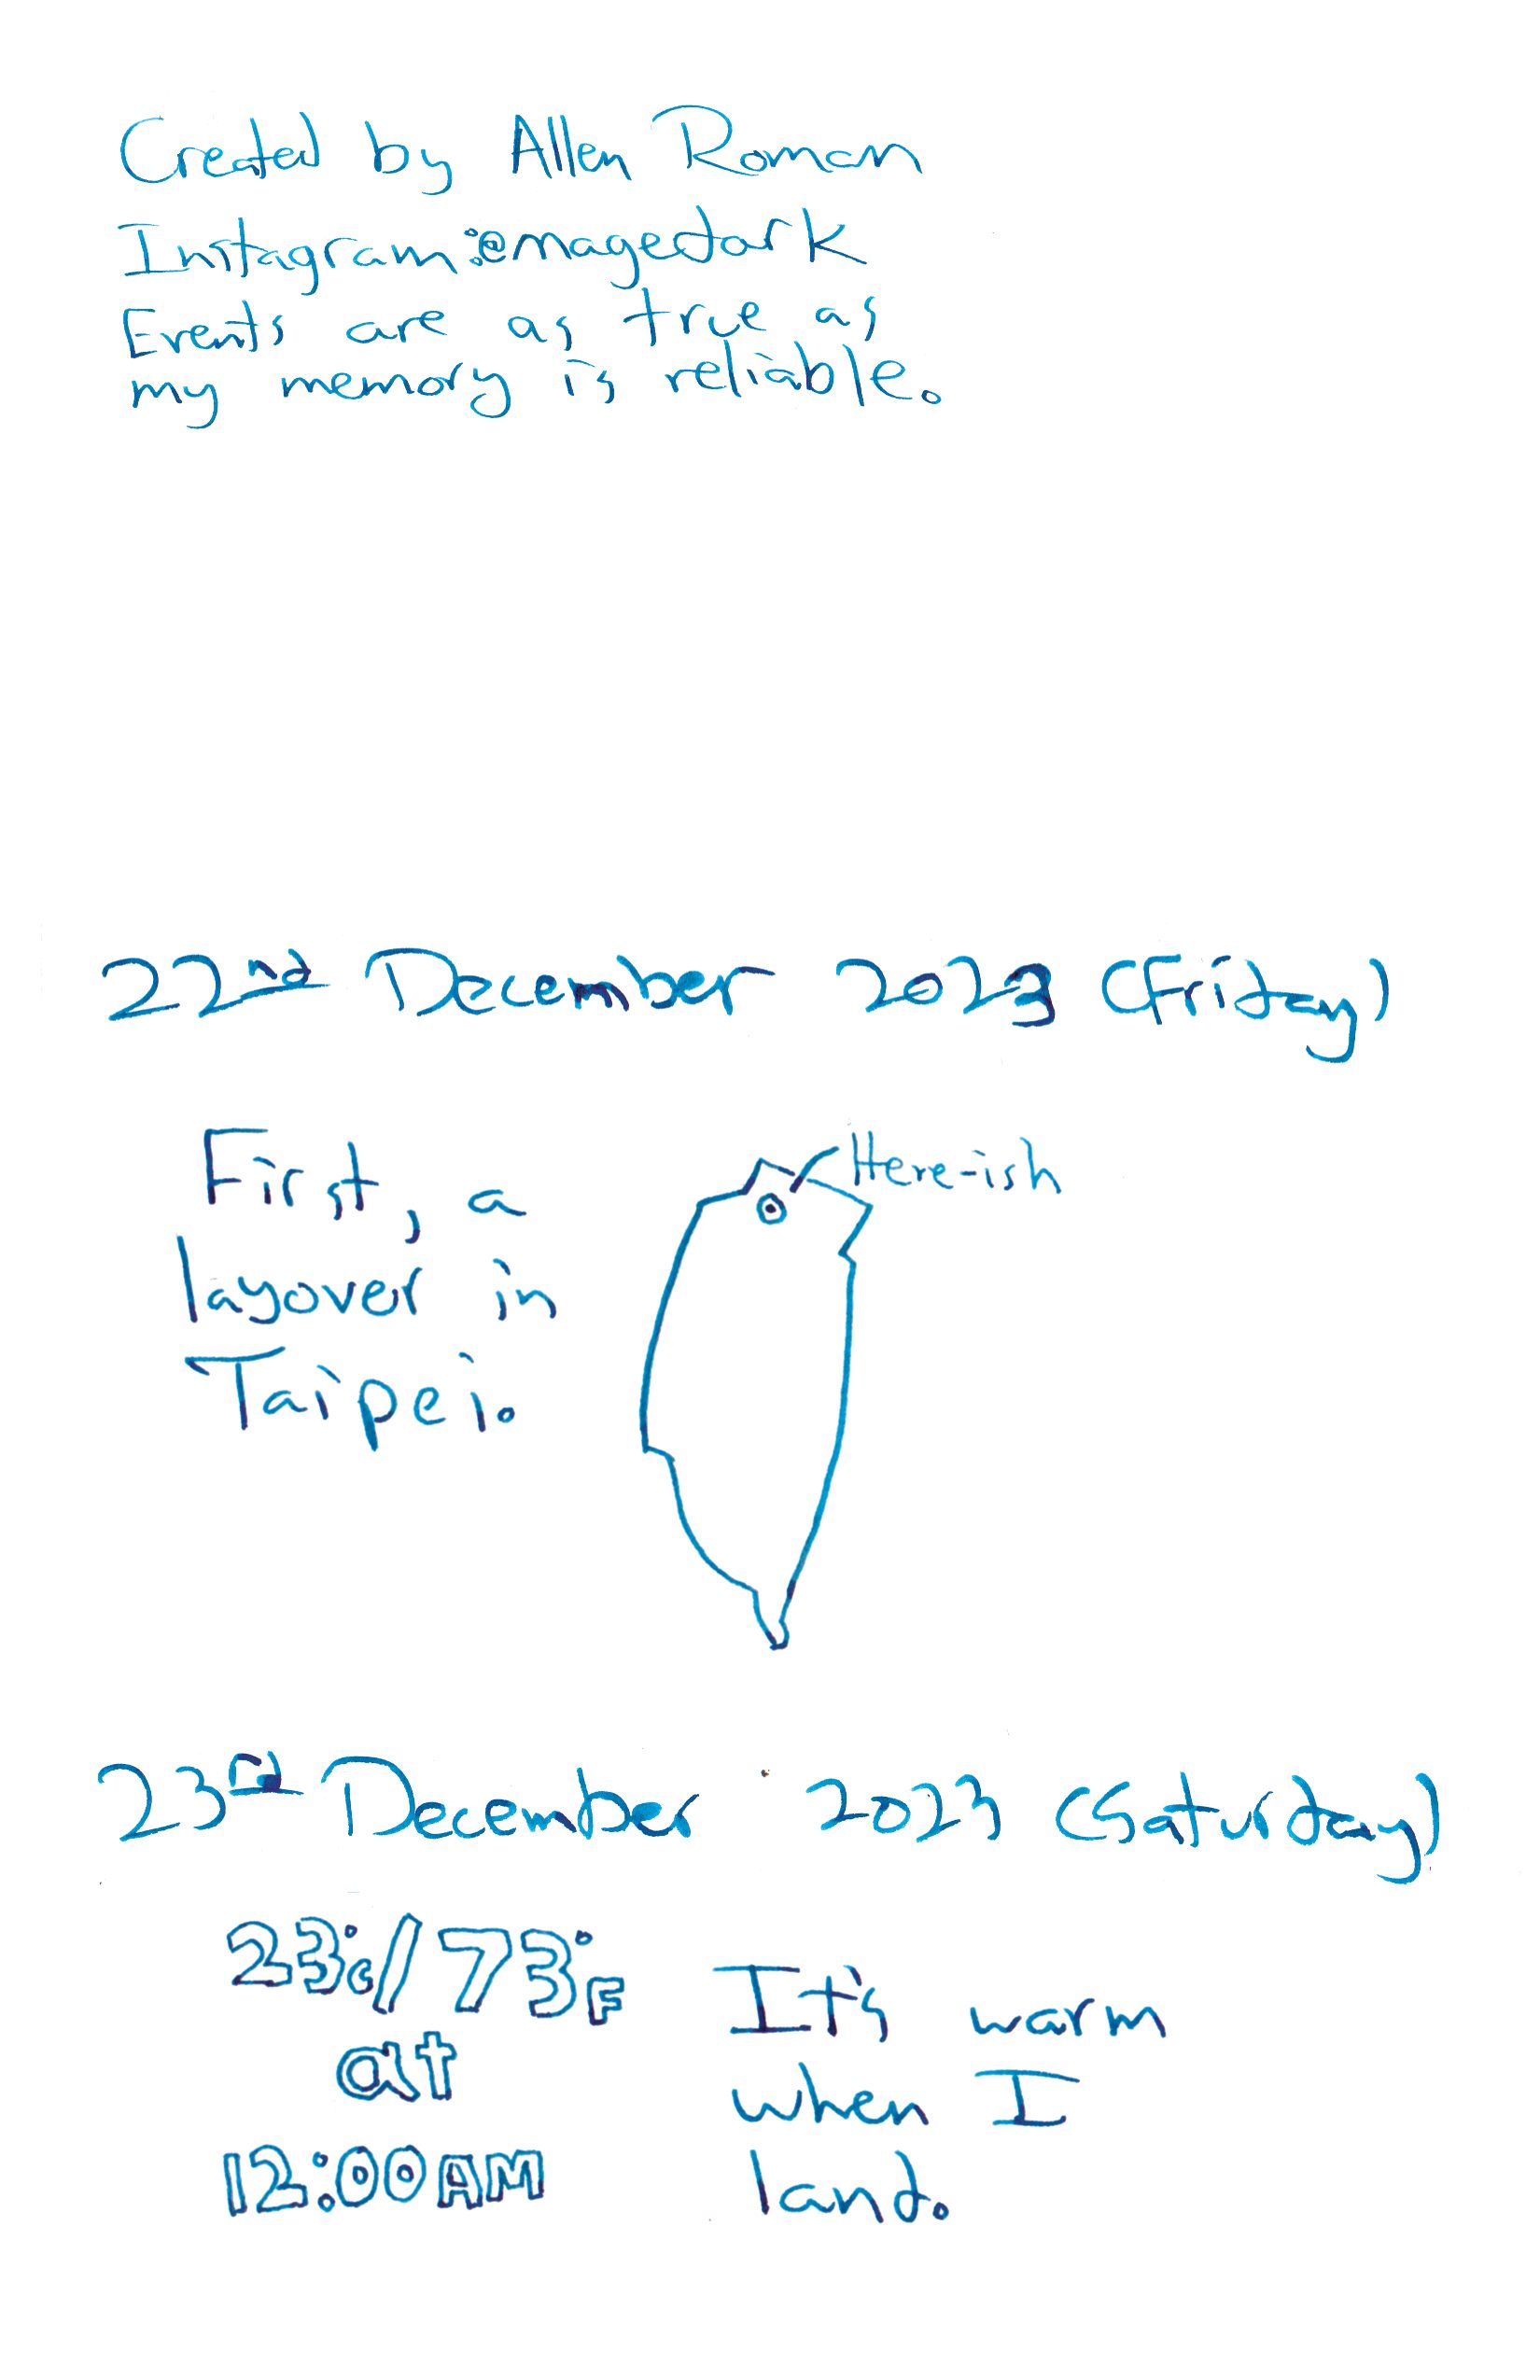 Created by Allen Roman
Instagram: @magedark
Events are as true as
my memory is reliable.
22nd December 2023 (Friday)
First, a
layover in
Taipei.
Here-ish
23rd December 2023 (Saturday)
23°C/73°F
at
12:00AM
It's warm
when I
land.